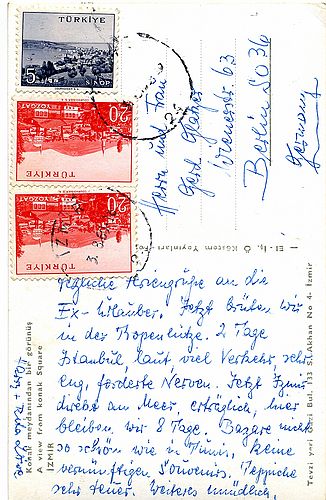 TÜRKİYE
5
SİNOP
20
YOZGAT
TÜRKİYE
20
YOZGAT
TÜRKİYE
Herrn und Frau
Gert
Wienerstr 63
Berlin SO 36
Germany
El-İş, Ö Kültem Yayınları
Herzliche Grüße an die
Ex-Urlauber. Jetzt brüten wir
in der Tropenhitze. 2 Tage
Istanbul, laut viel Verkehr, sehr
eng, forderte Nerven. Jetzt Izmir
direkt am Meer, erträglich, hier
bleiben wir 8 Tage. Bazare nicht
so schön wie in Tunis, keine
vernünftigen Souvenirs. Teppiche
sehr teuer. Weiteres mündlich,
Konak meydanından bir görünüş
A view from konak Square
İZMİR
Tevzi yeri Gazi Bul. 133 S. Akhan No 4- İzmir